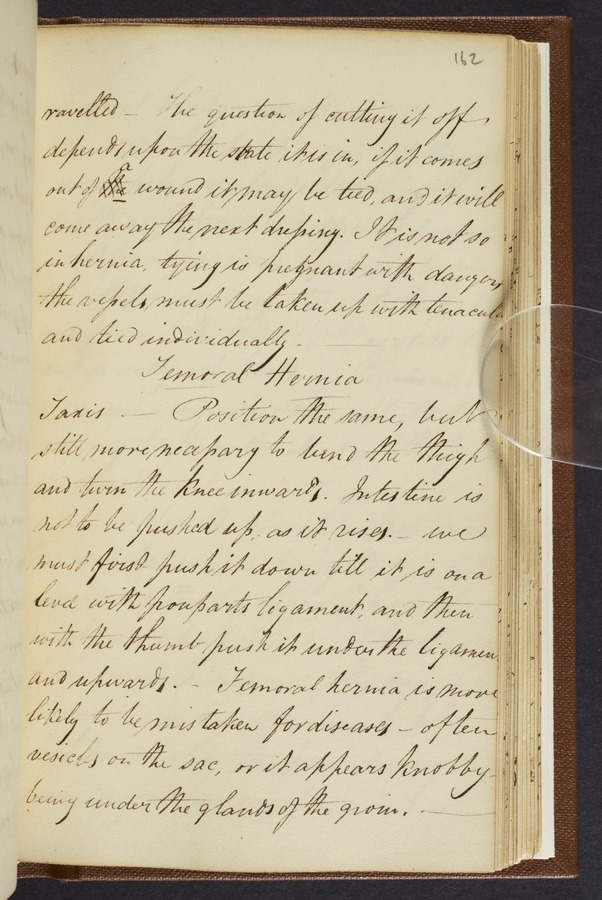 162
ravelled — The question of cutting it off
depends upon the state it is in, if it comes
out of a wound it may be tied, and it will
come away the next dressing. It is not so
in hernia, tying is pregnant with danger,
the vessels must be taken up with tenacula
and tied individually. —
Femoral Hernia
Taxis — Position the same, but
still more necessary to bend the thigh
and turn the knee inwards. Intestine is
not to be pushed up, as it rises. — we
must first push it down till it is on a
level with pouparts ligament, and then
with the thumb push it under the ligamen
and upwards. — Femoral hernia is more
likely to be mistaken for diseases — often
vesicles on the sac, or it appears knobby
being under the glands of the groin. —